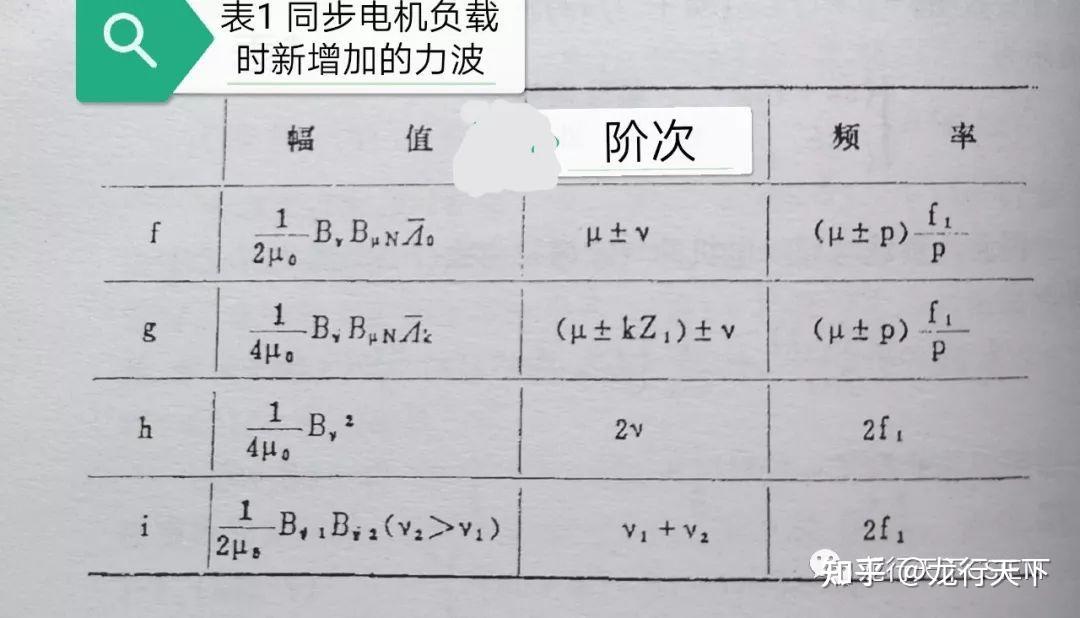 表1 同步电机负载
时新增加的力波
幅 值 阶次 频 率
f 1/2μ₀ B_ν B_μN Λ̄₀ μ±ν (μ±p) f₁/p
g 1/4μ₀ B_ν B_μN Λ̄ₖ (μ±kZ₁)±ν (μ±p) f₁/p
h 1/4μ₀ B_ν² 2ν 2f₁
i 1/2μ₀ B_ν₁ B_ν₂(ν₂>ν₁) ν₁+ν₂ 2f₁
知乎 @龙行天下